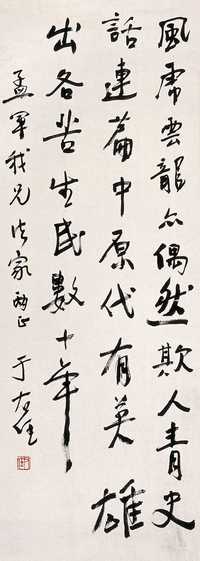 風虎雲龍亦偶然欺人青史
話連篇中原代有英雄
出各苦生民數十年
孟軍我兄法家正 于右任